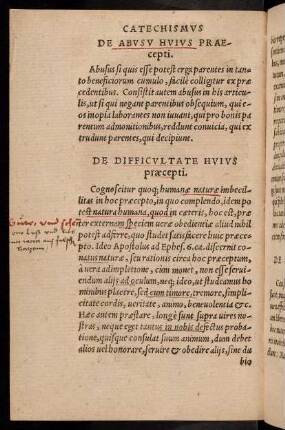 CATECHISMVS
DE ABVSV HVIVS PRAE-
cepti.
Abusus si quis esse potest erga parentes in tan-
to beneficiorum cumulo, facilè colligitur ex præ
cedentibus. Consistit autem abusus in his articu-
lis, ut si qui negant parentibus obsequium, qui e-
os inopia laborantes non iuuant, qui pro bonis pa
rentum admonitionibus, reddunt conuicia, qui ex
trudunt parentes, qui decipiunt.
DE DIFFICVLTATE HVIVS
præcepti.
Cognoscitur quoq; humanæ naturæ imbecil-
litas in hoc præcepto, in quo complendo, idem po
test natura humana, quod in cæteris, hoc est, præ
ter externam speciem ueræ obedientiæ aliud nihil
potest adferre, quo studet satisfacere huic præcep-
to. Ideo Apostolus ad Ephes. 6. ca. discernit co-
natus naturæ, seu rationis circa hoc præceptum,
à uera adimpletione, cùm monet, non esse serui-
endum alijs ad oculum, neq; ideo, ut studeamus ho
minibus placere, sed cum timore, tremore, simpli-
citate cordis, ueritate, animo, beneuolentia &c.
Hæc autem præstare, longè sunt supra uires no-
stras, neque eget tantus in nobis defectus proba-
tione, quisque consulat suum animum, dum debet
alios uel honorare, seruire & obedire alijs, sine du
bio